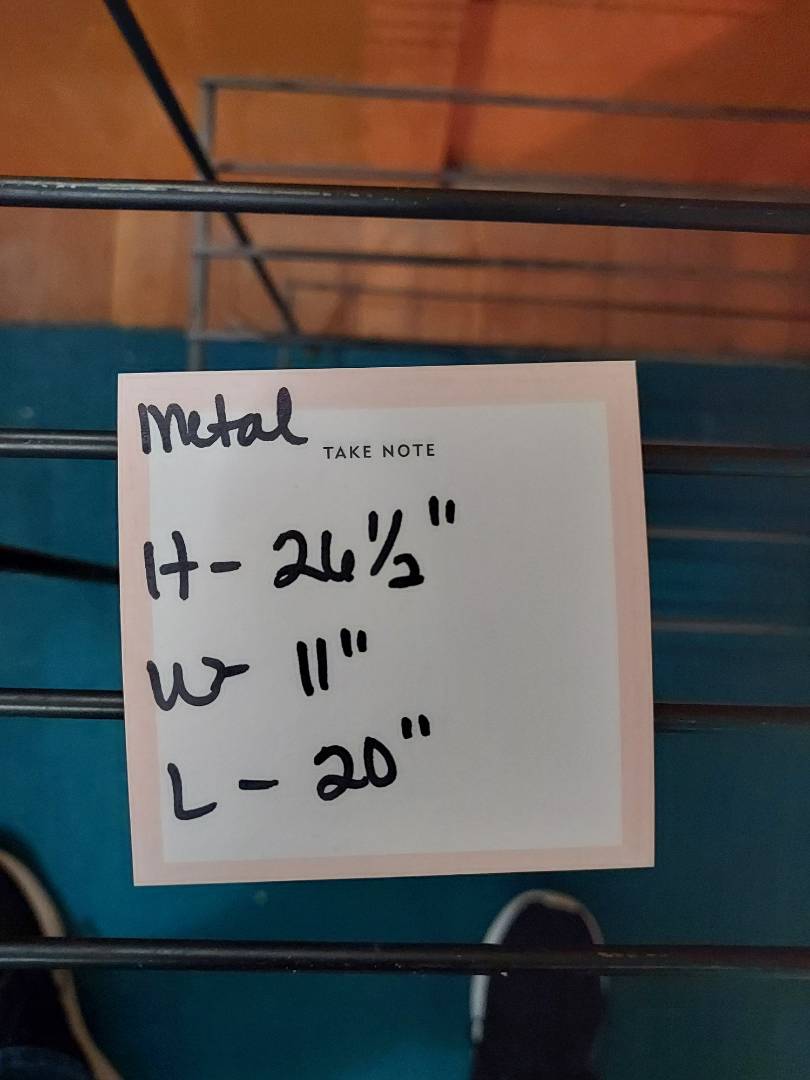 Metal
TAKE NOTE
H - 26 1/2"
W - 11"
L - 20"